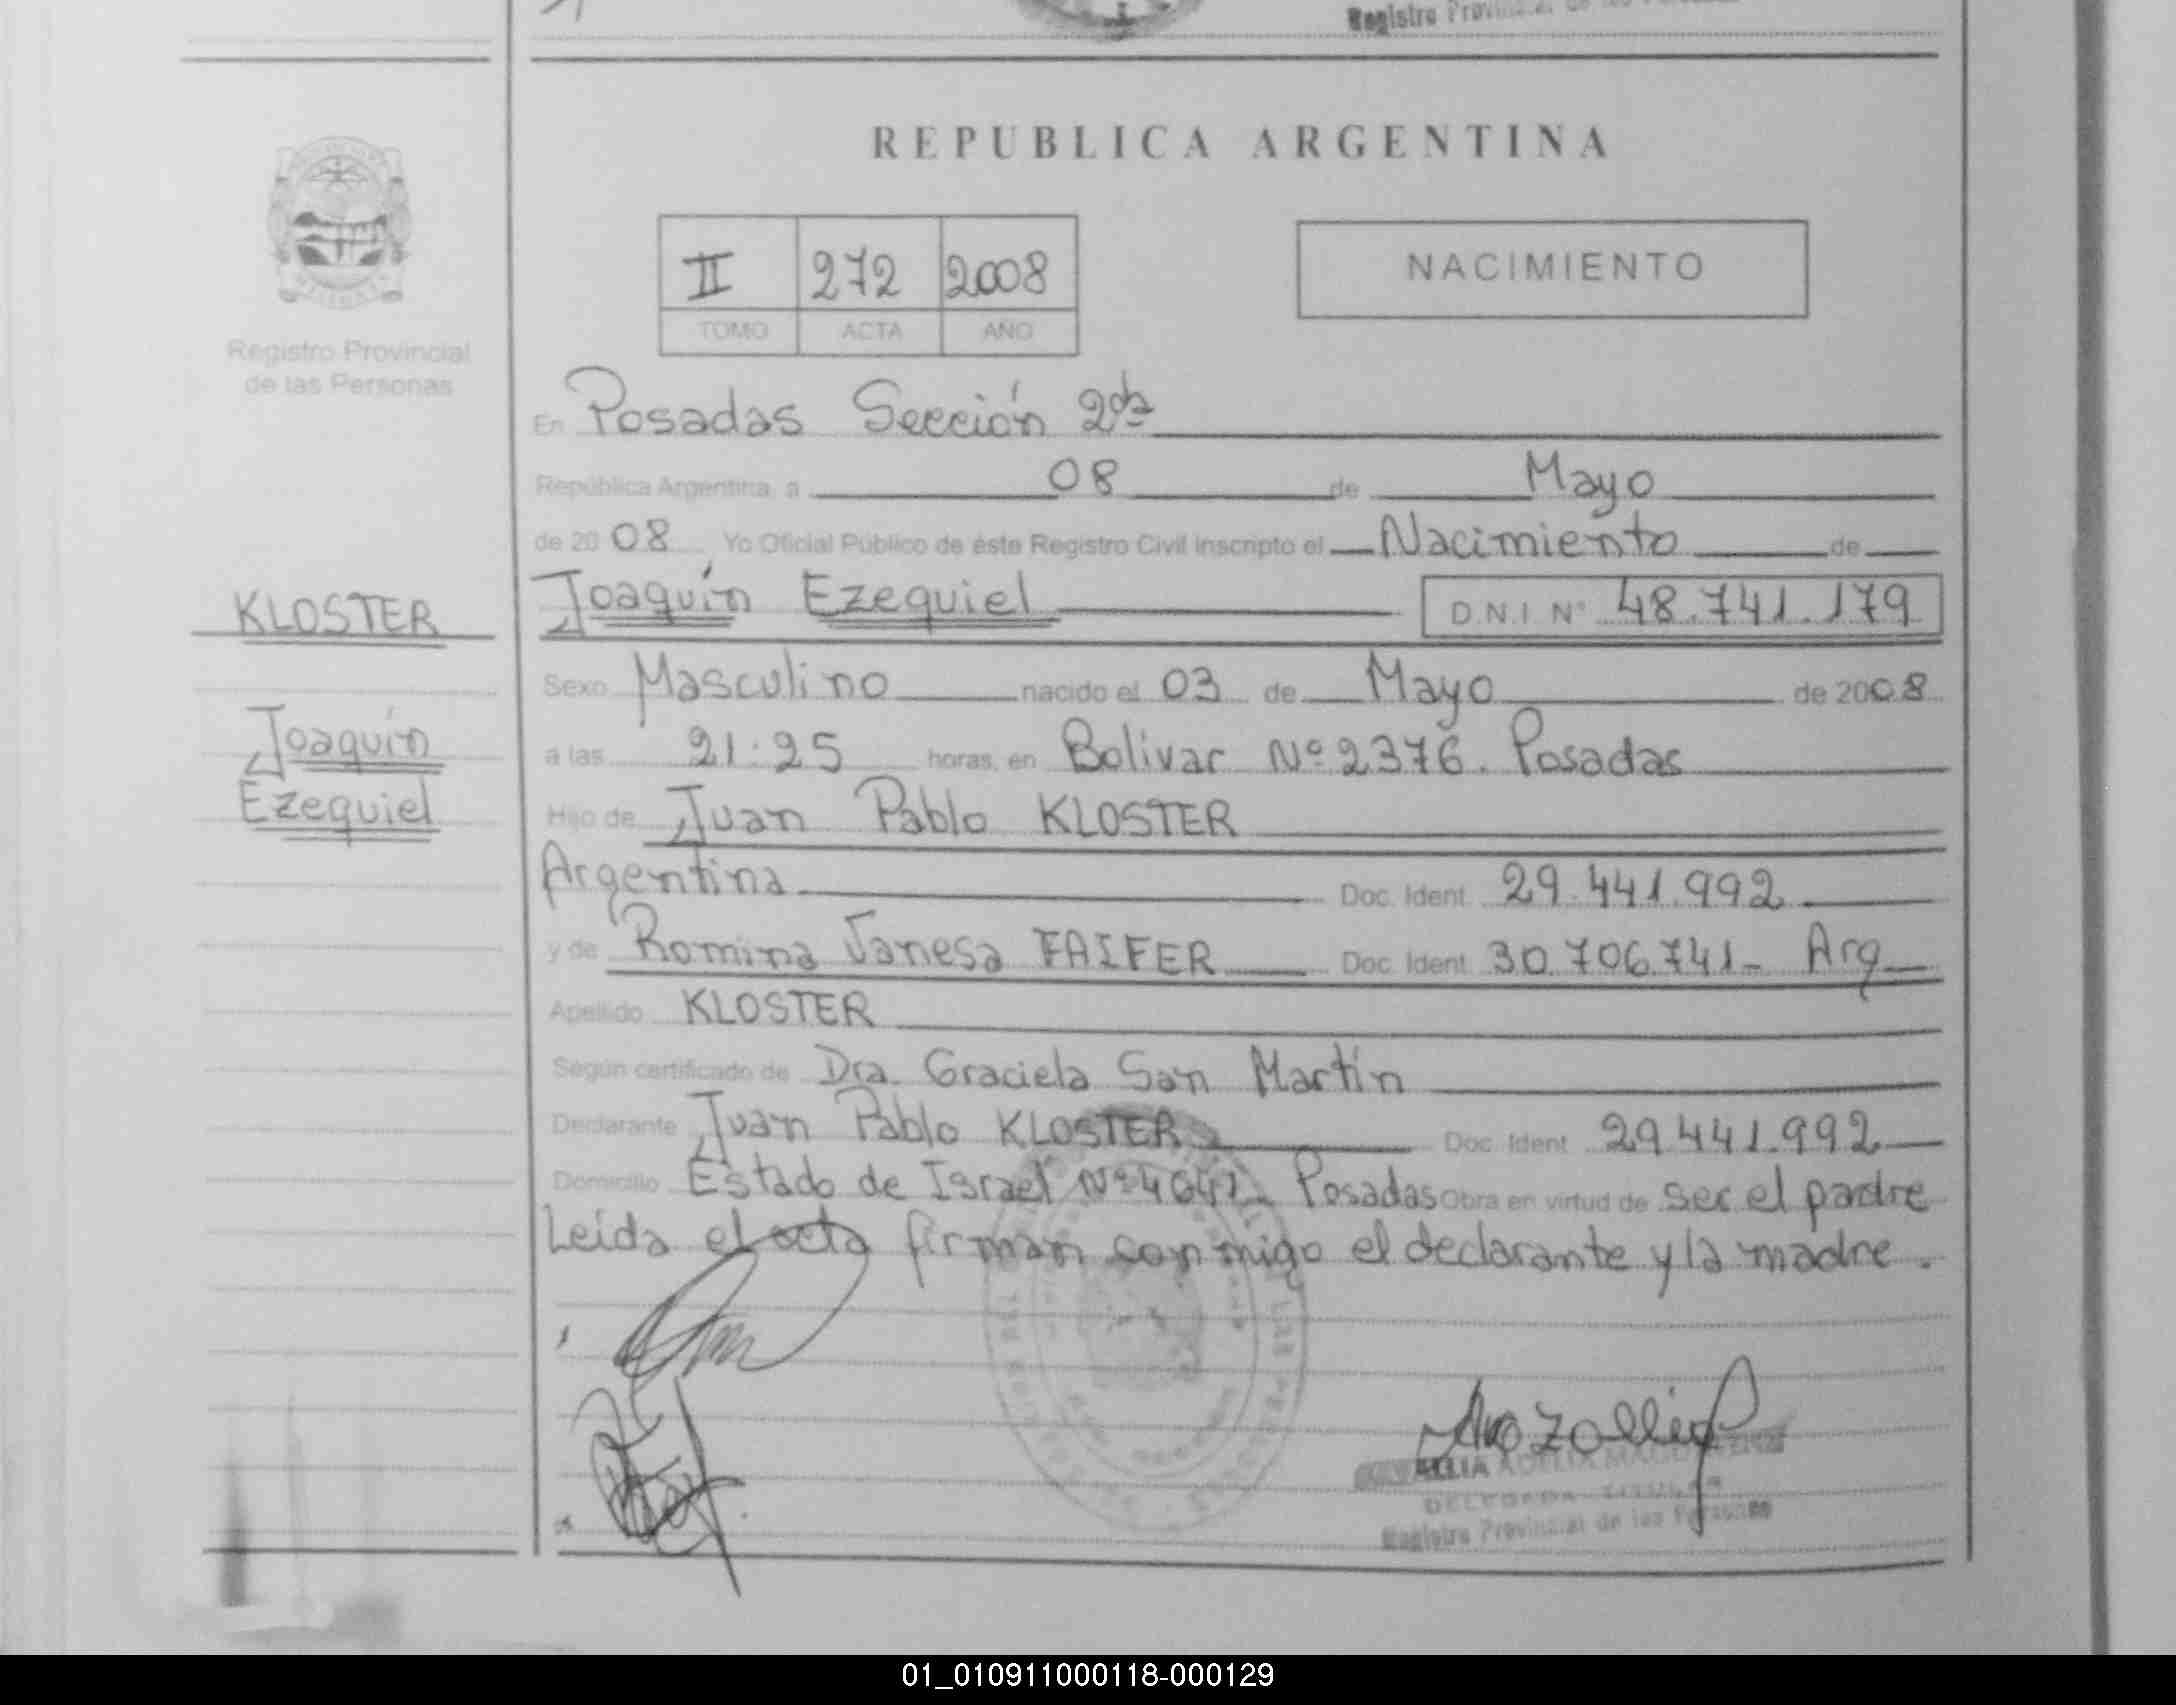 Registro Provincial de las Personas
REPUBLICA ARGENTINA
II 272 2008
TOMO ACTA AÑO
NACIMIENTO
Registro Provincial
de las Personas
KLOSTER
Joaquín
Ezequiel
En Posadas Sección 2da
República Argentina, a 08 de Mayo
de 2008 Yo Oficial Público de éste Registro Civil inscripto el Nacimiento de
Joaquín Ezequiel D.N.I. Nº 48.741.179
Sexo Masculino nacido el 03 de Mayo de 2008
a las 21:25 horas, en Bolivar Nº 2376. Posadas
Hijo de Juan Pablo KLOSTER
Argentina Doc. Ident. 29.441.992
y de Romina Vanesa FAIFER Doc. Ident. 30.706.741- Arg
Apellido KLOSTER
Según certificado de Dra. Graciela San Martín
Declarante Juan Pablo KLOSTER Doc. Ident. 29.441.992
Domicilio Estado de Israel Nº Posadas Obra en virtud de ser el padre
Leída el acta firman conmigo el declarante y la madre.
ADELIA
DELEGADA TITULAR
Registro Provincial de las Personas
01_010911000118-000129